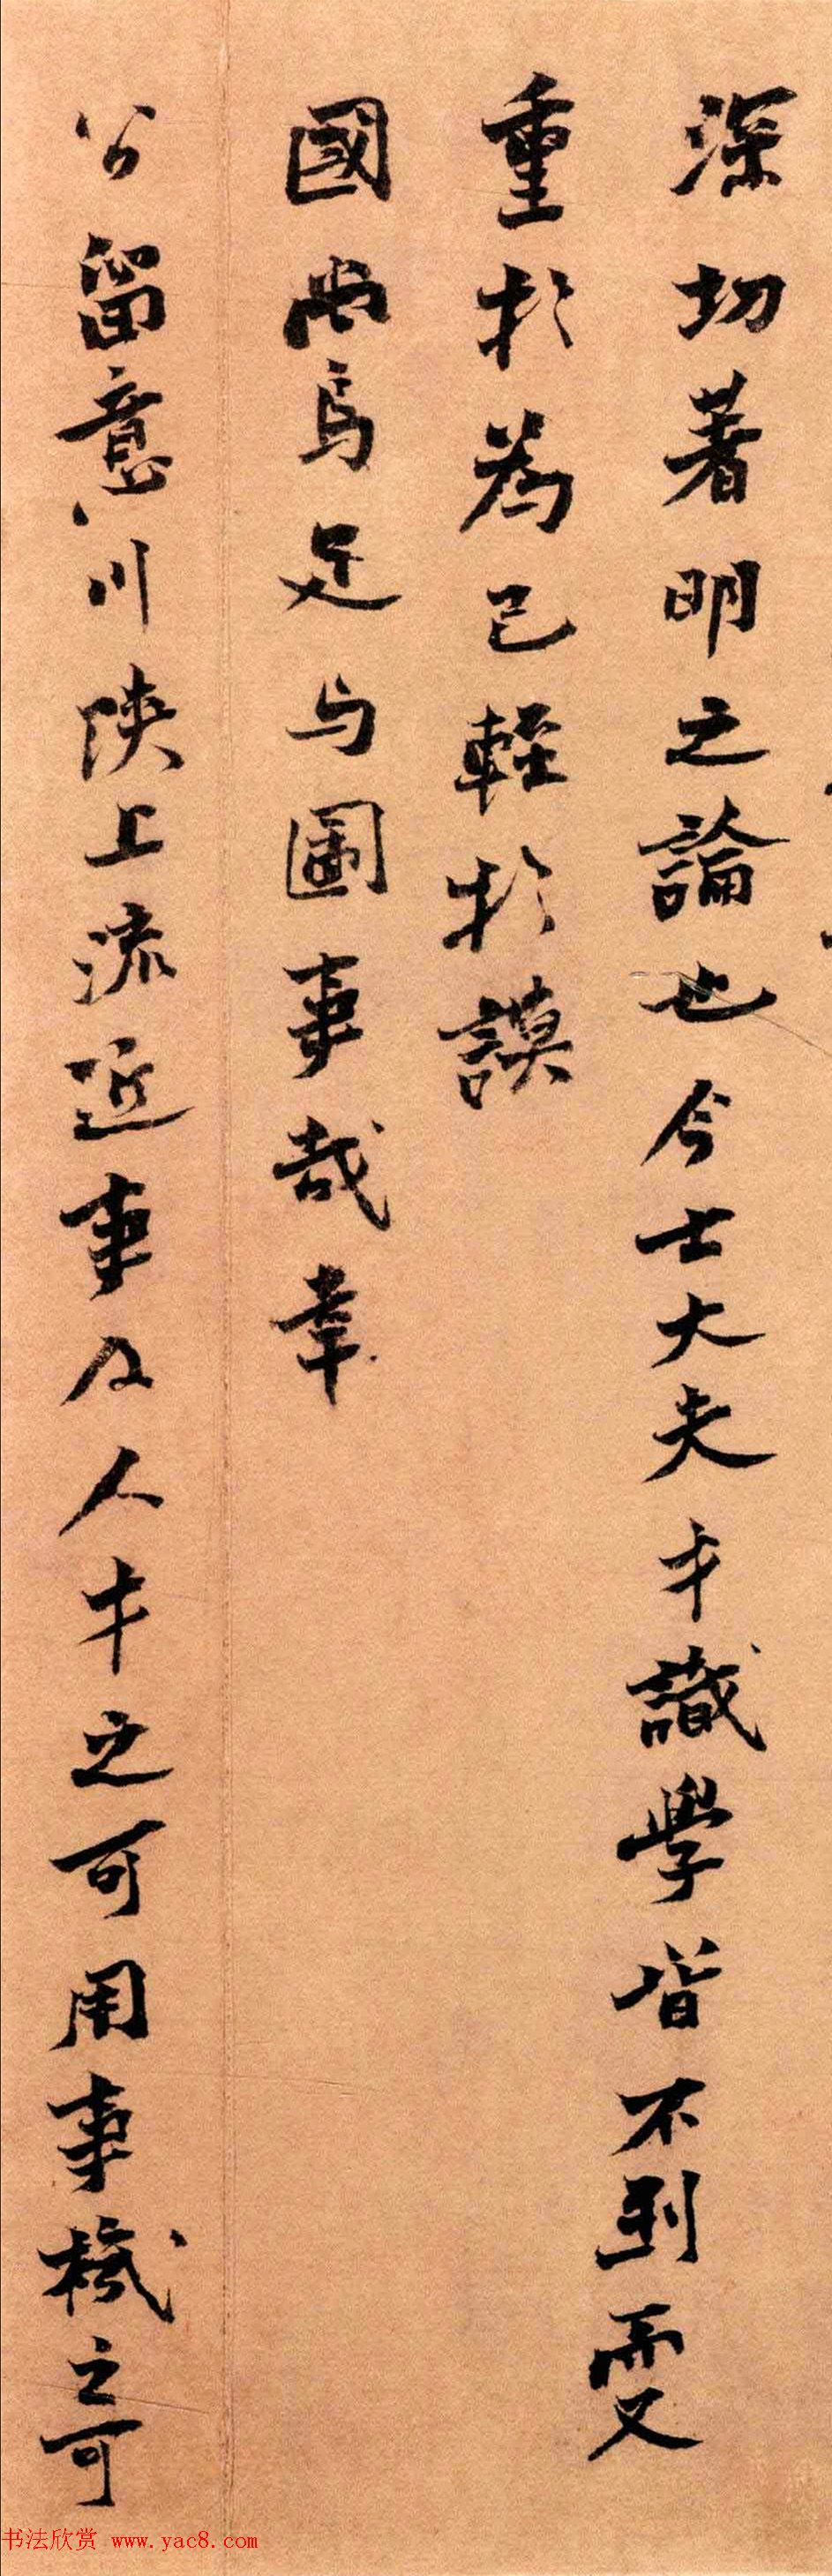 深切著明之論也今士大夫才識學皆不到而又
重於為己輕於謨
國尚烏足与圖事哉幸
公留意川陝上流近事及人才之可用事機之可
书法欣赏 www.yac8.com